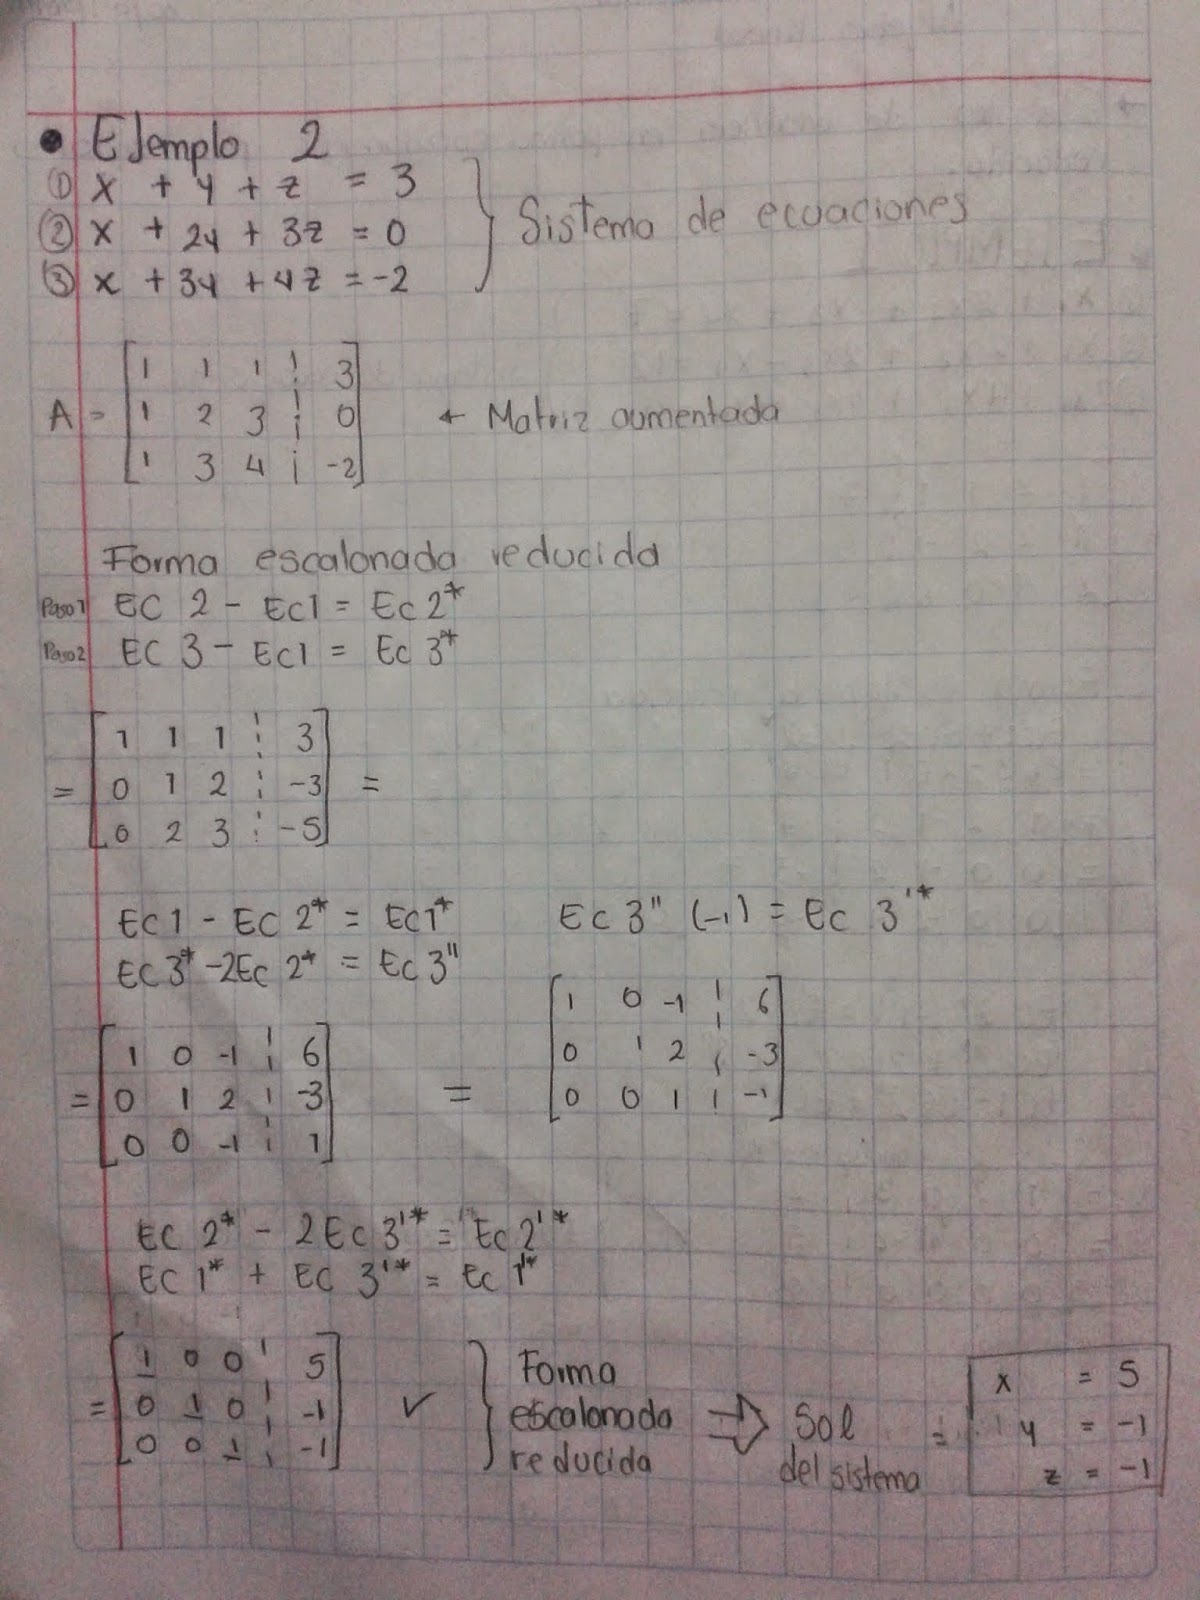 • Ejemplo 2
① x + y + z = 3
② x + 2y + 3z = 0
③ x + 3y + 4z = -2
} Sistema de ecuaciones
A = [1 1 1 ¦ 3]
[1 2 3 ¦ 0]
[1 3 4 ¦ -2]
← Matriz aumentada
Forma escalonada reducida
Paso 1 EC 2 - EC1 = Ec 2*
Paso 2 EC 3 - EC1 = Ec 3*
= [1 1 1 ¦ 3]
[0 1 2 ¦ -3] =
[0 2 3 ¦ -5]
EC1 - EC 2* = EC1*
EC 3* -2Ec 2* = EC 3"
= [1 0 -1 ¦ 6]
[0 1 2 ¦ -3]
[0 0 -1 ¦ 1]
EC 3" (-1) = EC 3'*
= [1 0 -1 ¦ 6]
[0 1 2 ¦ -3]
[0 0 1 ¦ -1]
EC 2* - 2EC 3'* = Ec 2'*
EC 1* + EC 3'* = Ec 1'*
= [1 0 0 ¦ 5]
[0 1 0 ¦ -1] ✓
[0 0 1 ¦ -1]
} Forma
escalonada
reducida
⇒ Sol
del sistema
=
x = 5
y = -1
z = -1